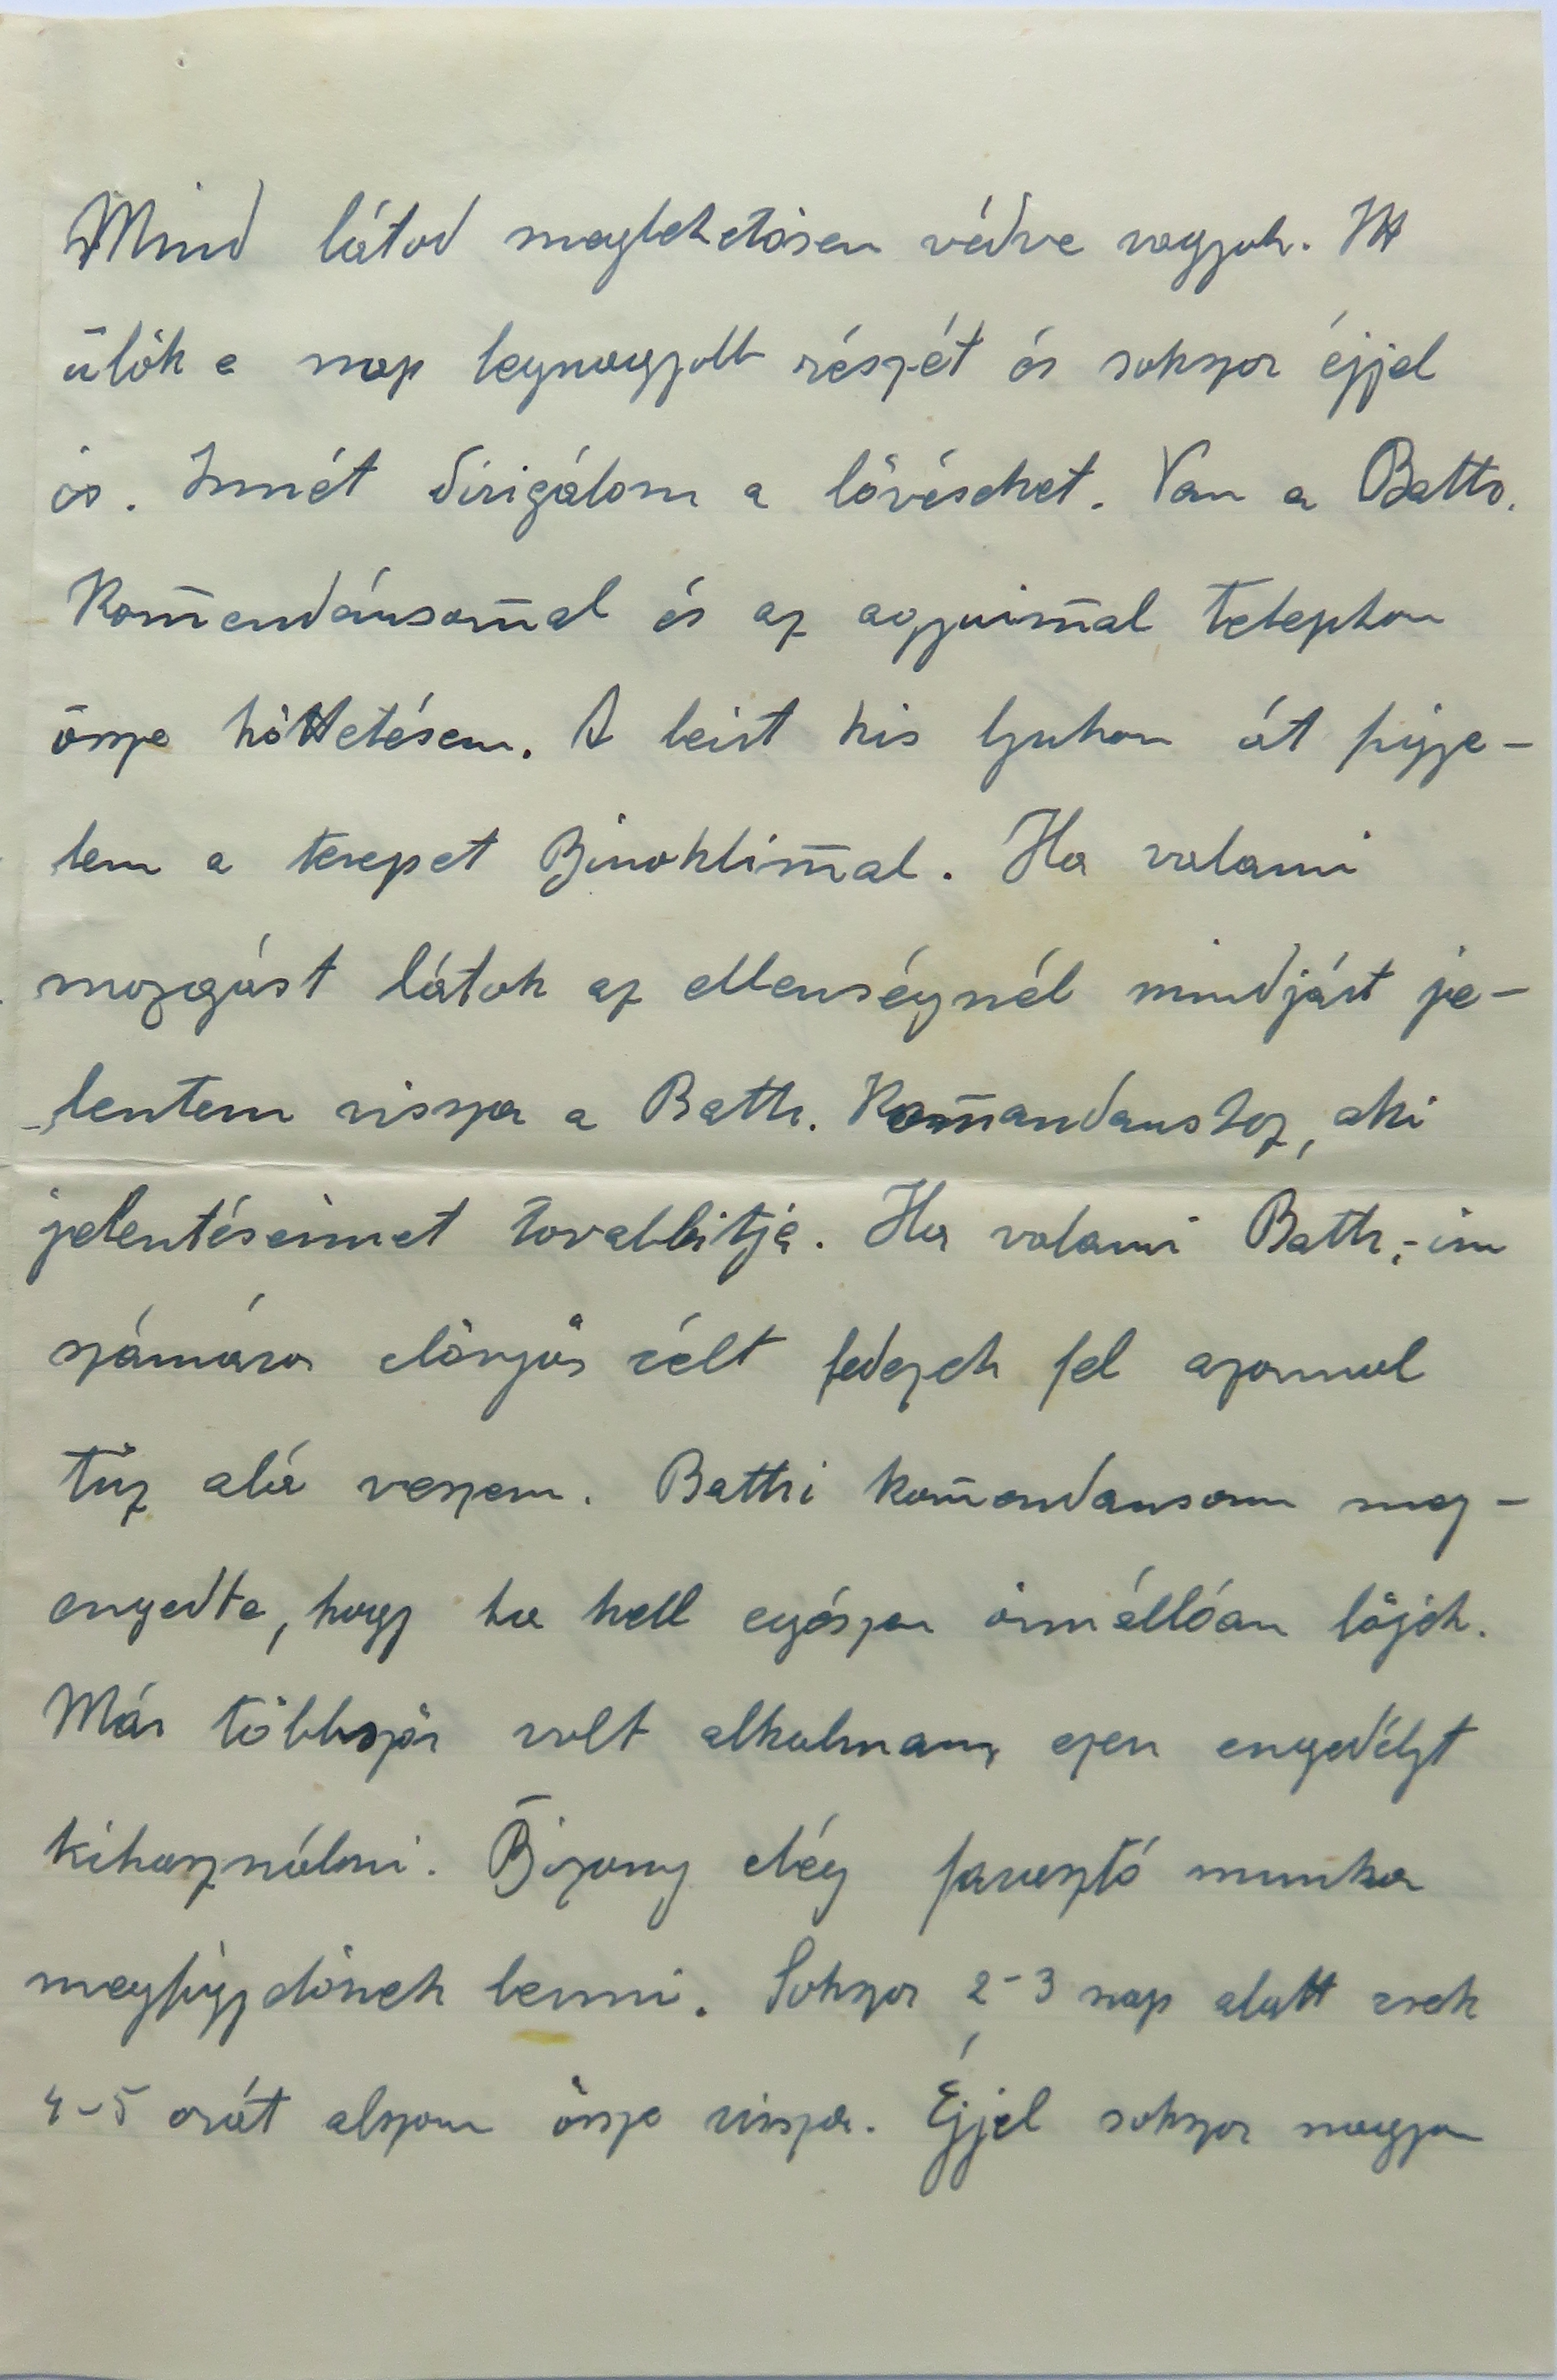 Mind látod meglehetősen védve vagyok. Itt
ülök a nap legnagyobb részét és sokszor éjjel
is. Innét dirigálom a lövéseket. Van a Battr.
Kom̄endánsom̄al és az agyuim̄al telephon
össze köttetésem. A leirt kis lyukon át figye-
lem a terepet Binoklim̄al. Ha valami
mozgást látok az ellenségnél mindjárt je-
lentem vissza a Battr. Kom̄andanshoz, aki
jelentéseimet tovabbitja. Ha valami Battr.-im
számára előnyös célt fedezek fel azonnal
tűz alá veszem. Battri kom̄endansom meg-
engedte, hogy ha kell egészen önnállóan lőjek.
Már többször volt alkalmam ezen engedélyt
kihasználni. Bizony elég farasztó munka
megfigyelőnek lenni. Sokszor 2-3 nap alatt csak
4-5 orát alszom össze vissza. Éjjel sokszor nagyon